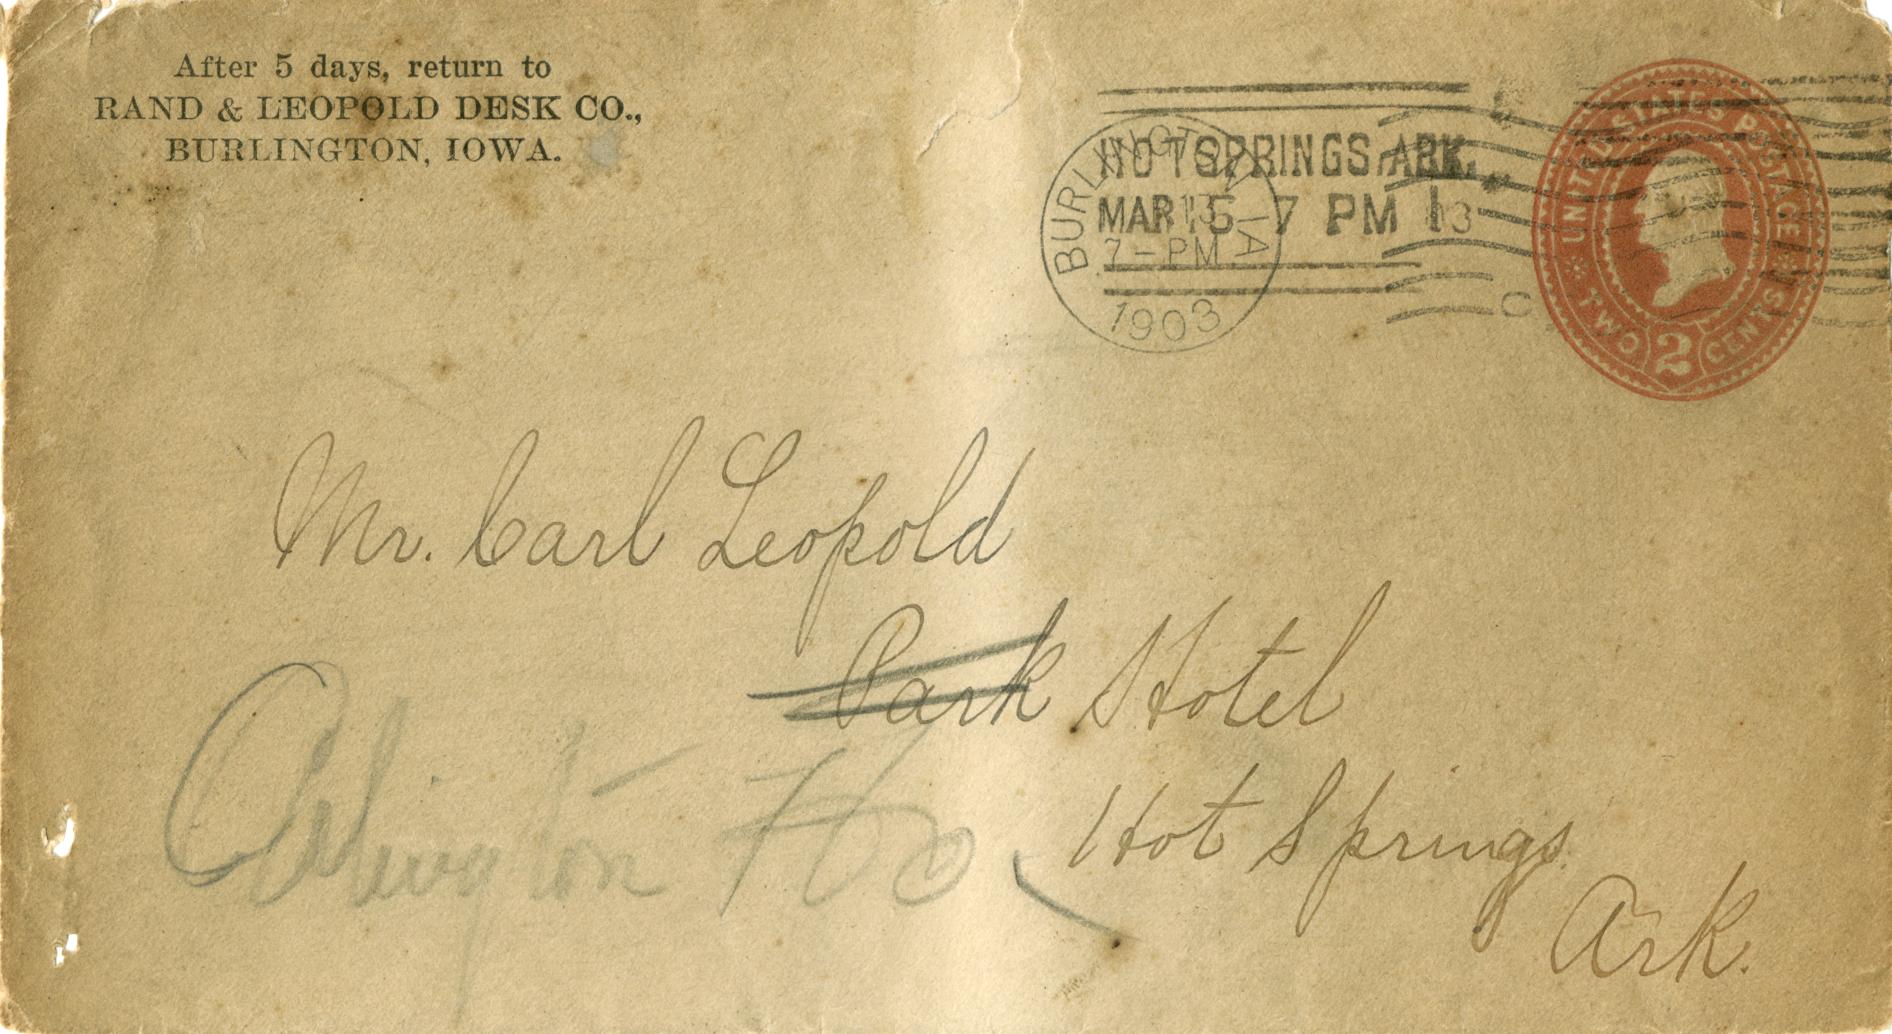 After 5 days, return to
RAND & LEOPOLD DESK CO.,
BURLINGTON, IOWA.
HOT SPRINGS, ARK.
MAR 15 7 PM
BURLINGTON IA
7-PM
1903
UNITED STATES POSTAGE
TWO 2 CENTS
Mr. Carl Leopold
Park Hotel
Arlington Ho
Hot Springs
Ark.